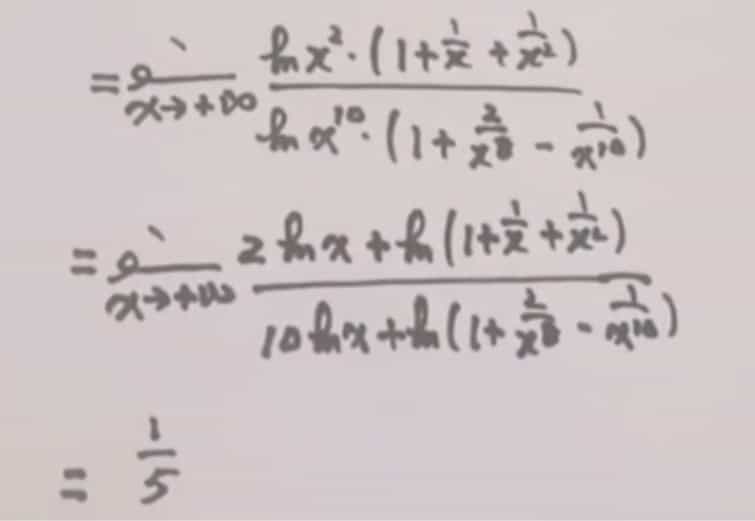 = lim x→+∞ ln x²·(1+1/x+1/x²) / ln x¹⁰·(1+2/x⁸-1/x¹⁰)
= lim x→+∞ 2 ln x+ln(1+1/x+1/x²) / 10 ln x+ln(1+2/x⁸-1/x¹⁰)
= 1/5